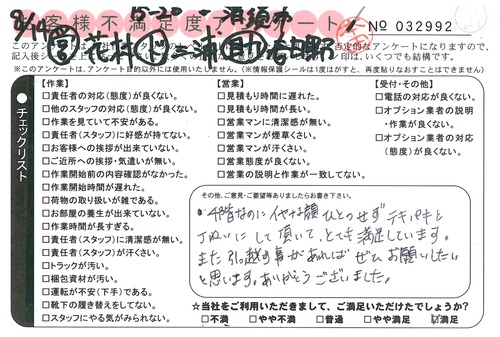 15-30 一須市
8/19
お客様不満足度アンケート
No 032992
このアンケートは
否定的なアンケートになりますので、
記入後シー
印は、いくつでも結構です。
(※このアンケートは、アンケート目的以外には使用いたしません。)(※情報保護シールは1度はがすと、再度貼りなおすことはできません)
チェックリスト
【作業】
□責任者の対応(態度)が良くない。
□他のスタッフの対応(態度)が良くない。
□作業を見ていて不安がある。
□責任者(スタッフ)に好感が持てない。
□お客様への挨拶が出来ていない。
□ご近所への挨拶・気遣いが無い。
□作業開始前の内容確認がなかった。
□作業開始時間が遅れた。
□荷物の取り扱いが雑である。
□お部屋の養生が出来ていない。
□作業時間が長すぎる。
□責任者(スタッフ)に清潔感が無い。
□責任者(スタッフ)が汗くさい。
□トラックが汚い。
□梱包資材が汚い。
□運転が不安(下手)である。
□靴下の履き替えをしてない。
□スタッフにやる気がみられない。
【営業】
□見積もり時間に遅れた。
□見積もり時間が長い。
□営業マンに清潔感が無い。
□営業マンが煙草くさい。
□営業マンが汗くさい。
□営業態度が良くない。
□営業の説明と作業が一致してない。
【受付・その他】
□電話の対応が良くない。
□オプション業者の説明・作業が良くない。
□オプション業者の対応(態度)が良くない。
その他、ご意見・ご要望等ありましたらお書き下さい。
4階なのにイヤな顔ひとつせずテキパキと
丁ねいにして頂いて、とても満足しています。
また引越す事があればぜひお願いしたい
と思います。ありがとうございました。
☆当社をご利用いただきまして、ご満足いただけたでしょうか?
□不満 □やや不満 □普通 □やや満足 ☑満足